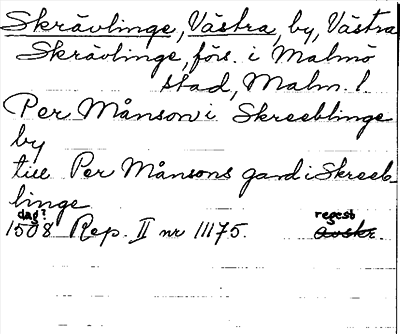 Skrävlinge, Västra, by, Västra
Skrävlinge, förs. i Malmö
stad, Malm. l.
Per Månson i Skreeblinge
by
till Per Månsons gard i Skreeb-
linge
dag?
1508 Rep. II nr 11175.
regest
avskr.